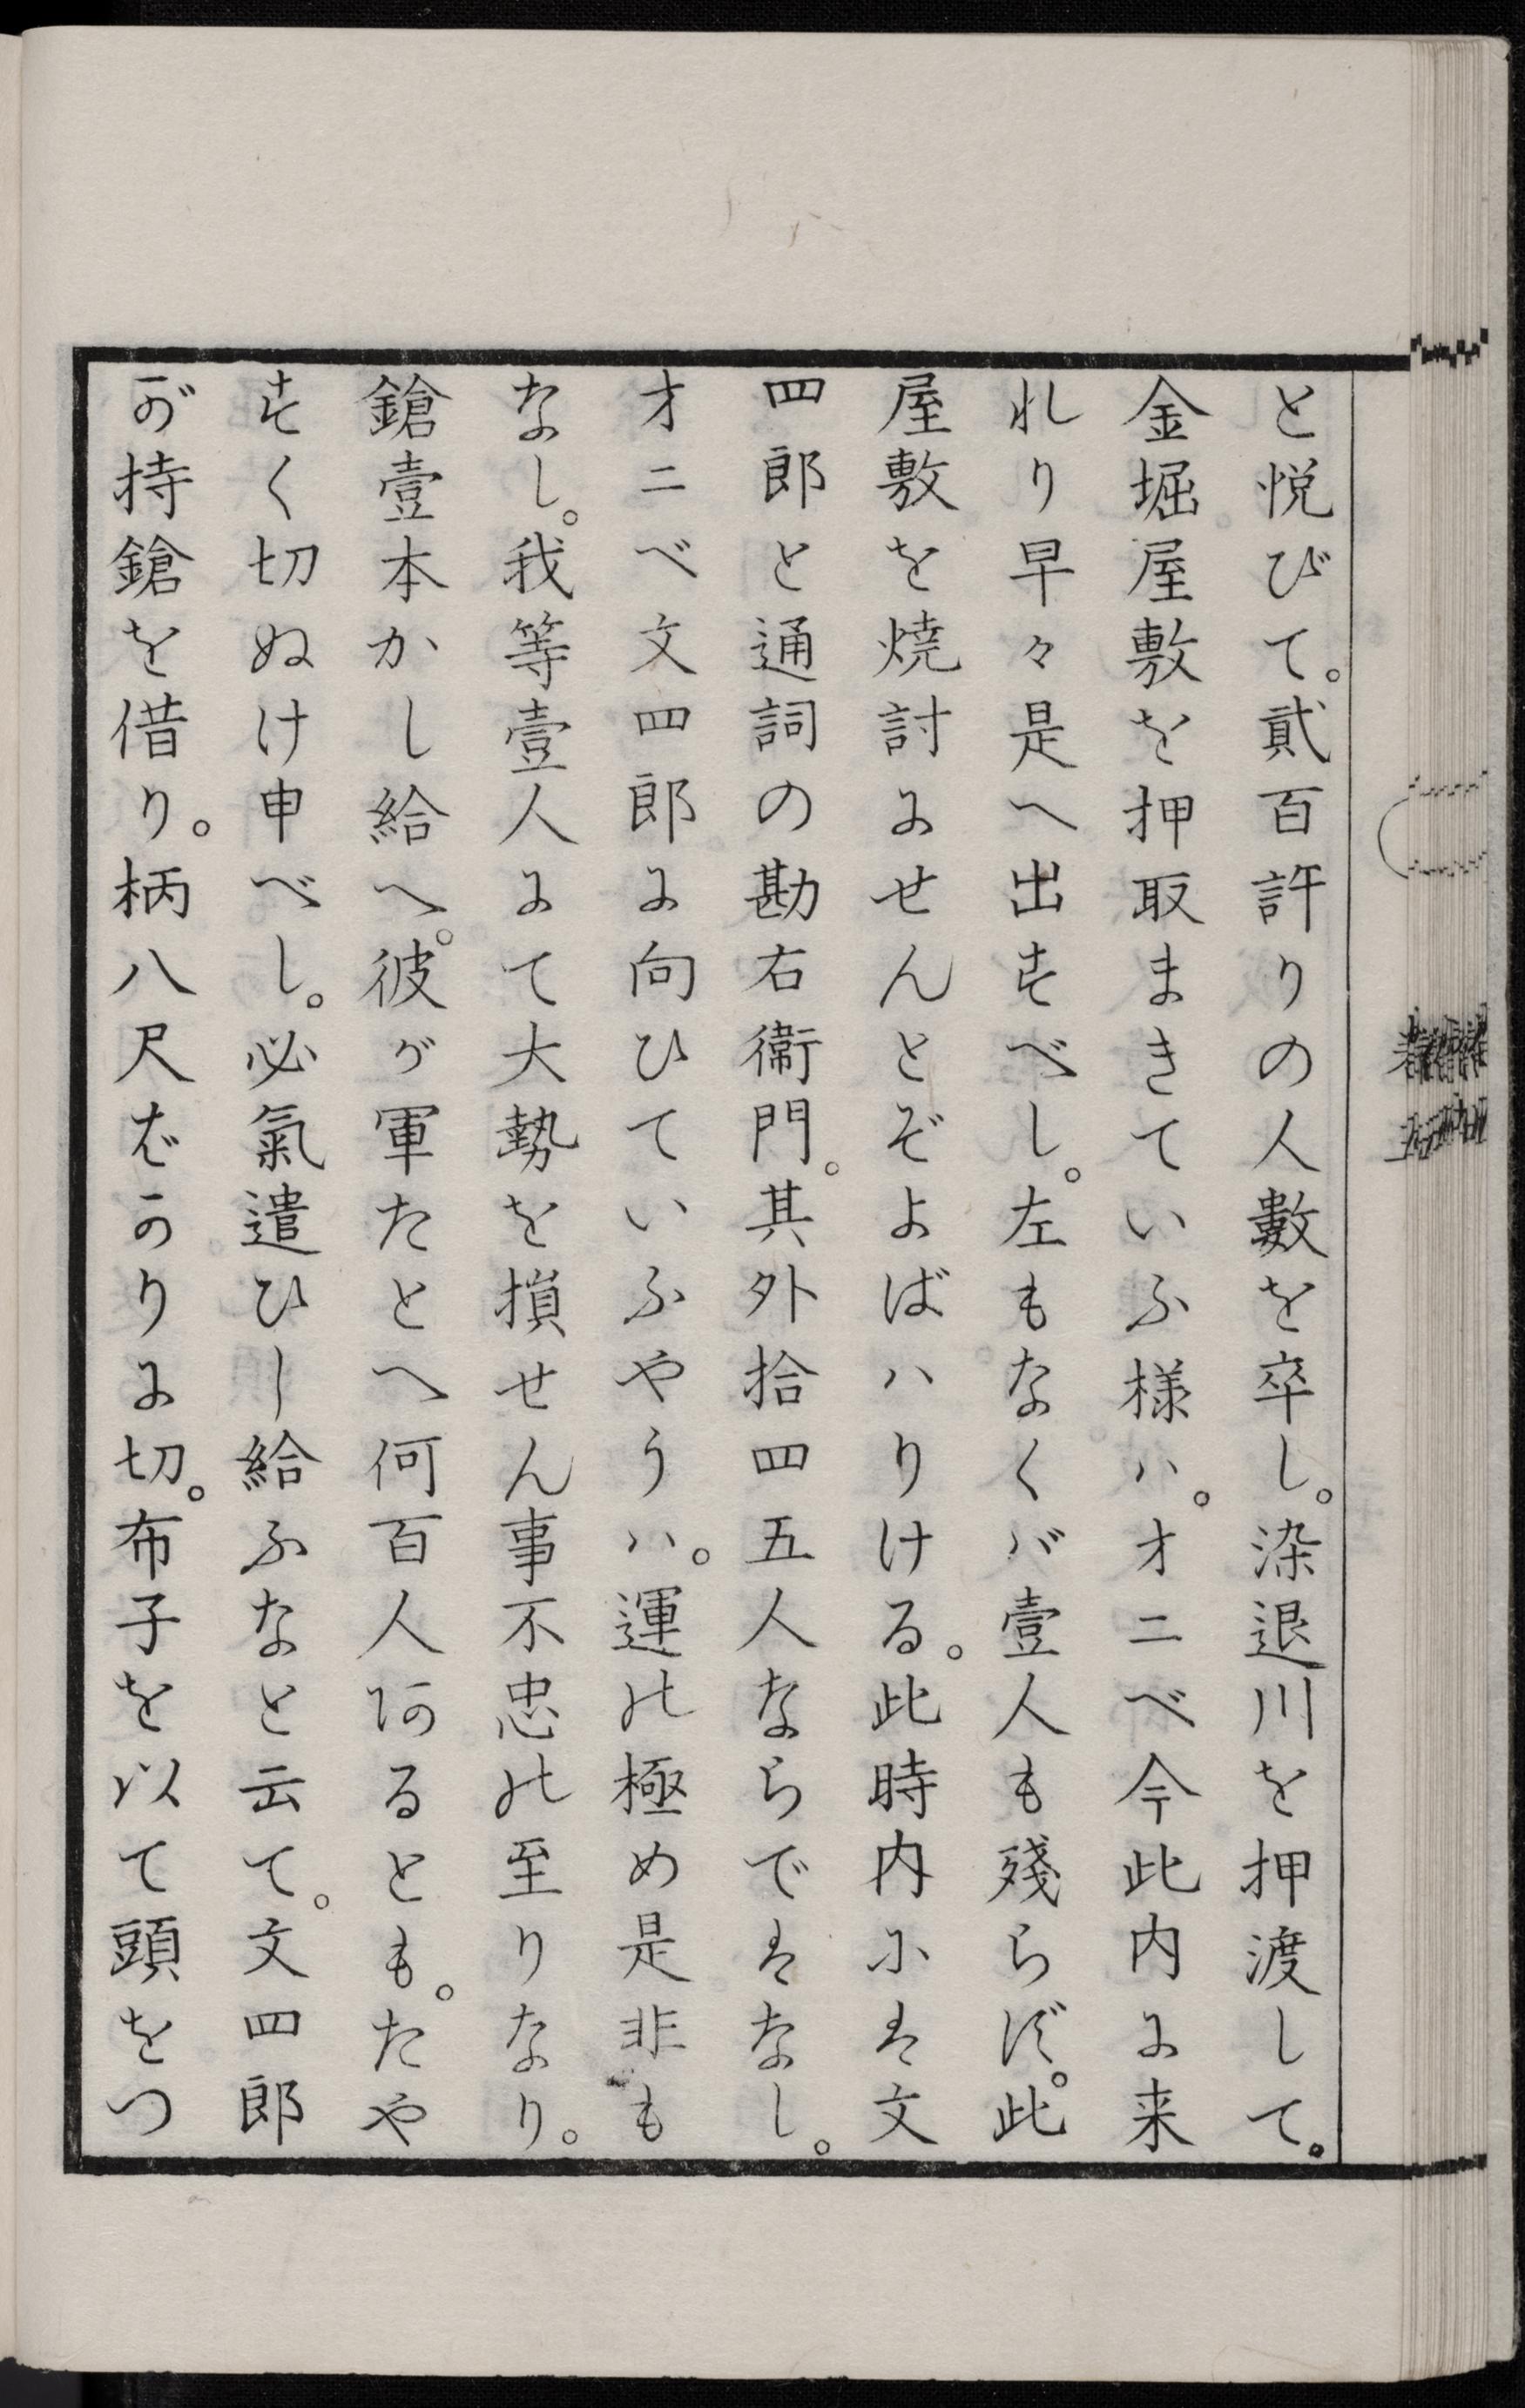 と悦びて。貳百許りの人數を卒し。染退川を押渡して。
金堀屋敷を押取まきていふ様ハ。オニベ今此内に来
れり早々是へ出すべし。左もなくバ壹人も殘らず。此
屋敷を燒討にせんとぞよばハりける。此時内には文
四郎と通詞の勘右衞門。其外拾四五人ならではなし。
オニベ文四郎に向ひていふやうハ。運の極め是非も
なし。我等壹人にて大勢を損せん事不忠の至りなり。
鎗壹本かし給へ。彼が軍たとへ何百人あるとも。たや
すく切ぬけ申べし。必氣遣ひし給ふなと云て。文四郎
が持鎗を借り。柄八尺ばかりに切。布子を以て頭をつ